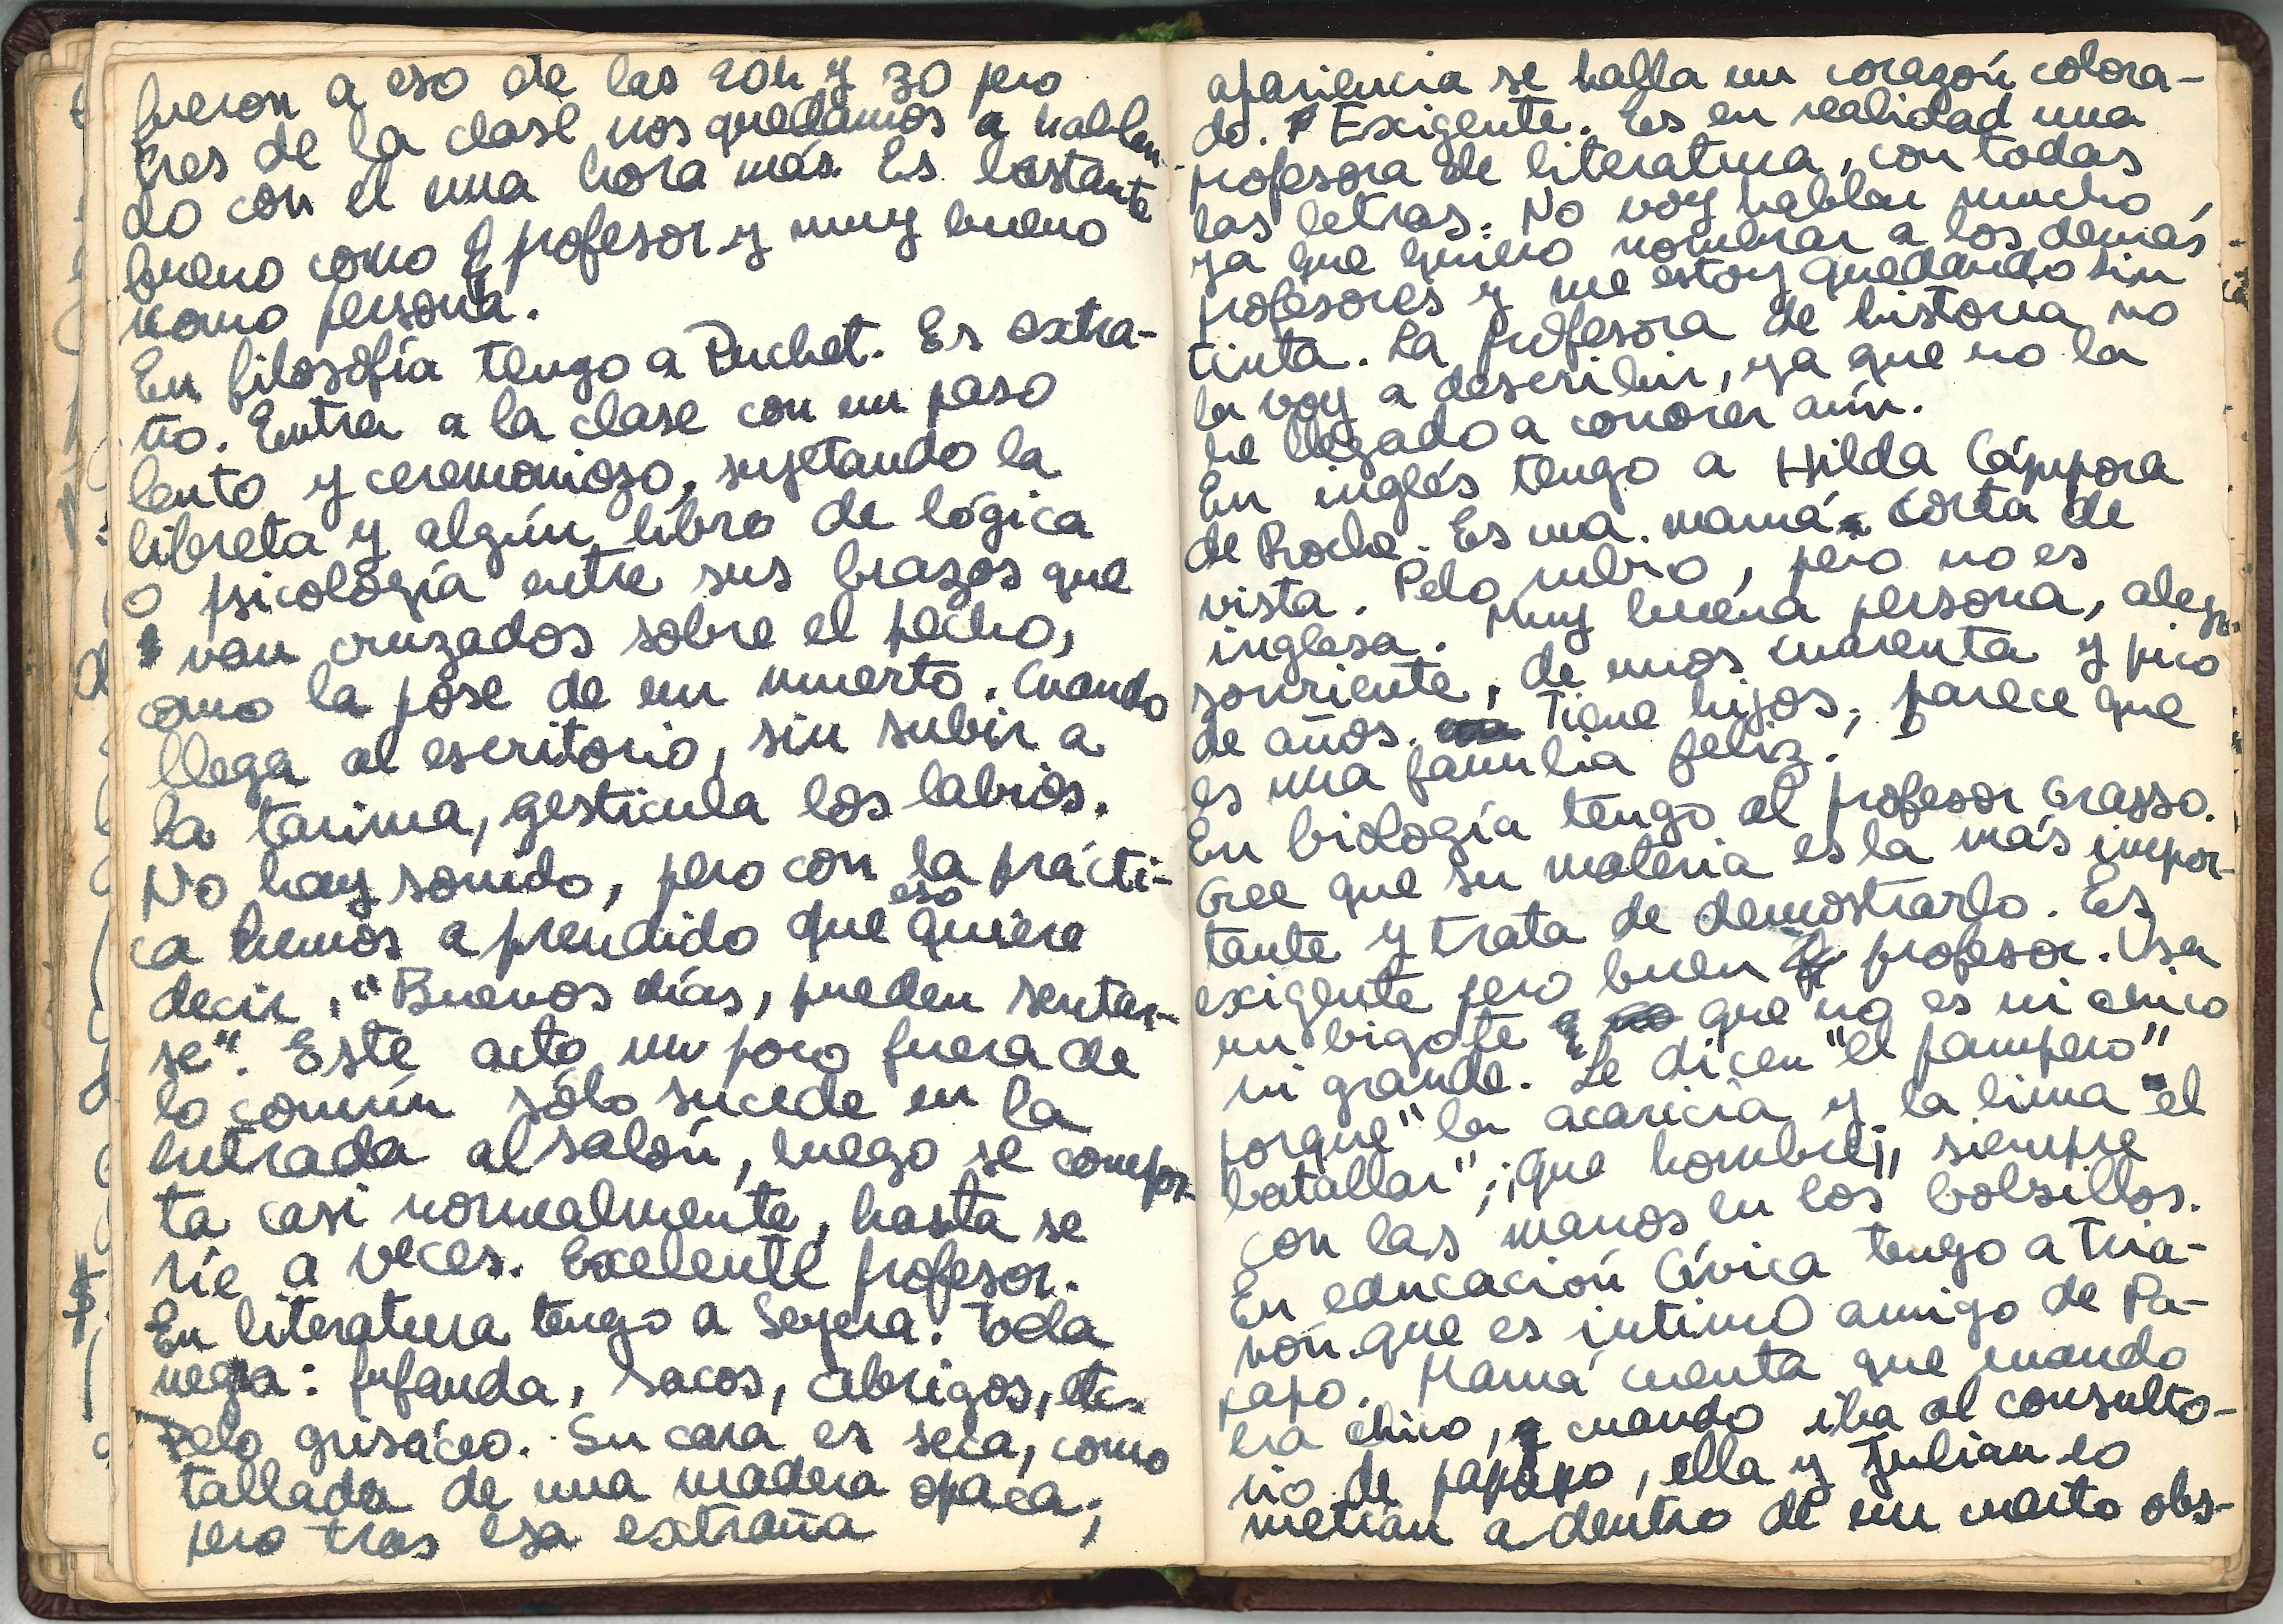 fueron a eso de las 20h y 30 pero
tres de la clase nos quedamos a hablan-
do con el una hora más. Es bastante
bueno como profesor y muy bueno
como persona.
En filosofía tengo a Puchet. Es extra-
ño. Entra a la clase con un paso
lento y ceremonioso, sujetando la
libreta y algún libro de lógica
o psicología entre sus brazos que
van cruzados sobre el pecho,
como la pose de un muerto. Cuando
llega al escritorio, sin subir a
la tarima, gesticula los labios.
No hay sonido, pero con la prácti-
ca hemos aprendido que eso quiere
decir, "Buenos días, pueden sentar-
se". Este acto un poco fuera de
lo común sólo sucede en la
entrada al salón, luego se compor-
ta casi normalmente, hasta se
ríe a veces. Excelente profesor.
En literatura tengo a Seyera. Toda
negra: bufanda, sacos, abrigos, etc.
Pelo grisáceo. Su cara es seca, como
tallada de una madera opaca;
pero tras esa extraña
apariencia se halla un corazón colora-
do. Exigente. Es en realidad una
profesora de literatura, con todas
las letras. No voy hablar mucho,
ya que quiero nombrar a los demás
profesores y me estoy quedando sin
tinta. La profesora de historia no
la voy a describir, ya que no la
he llegado a conocer aún.
En inglés tengo a Hilda Cáppora
de Roche. Es una mamá corta de
vista. Pelo rubio, pero no es
inglesa. Muy buena persona, alegre
sonriente, de unos cuarenta y pico
de años. Tiene hijos, parece que
es una familia feliz.
En biología tengo al profesor Grasso.
Cree que su materia es la más impor-
tante y trata de demostrarlo. Es
exigente pero buen profesor. Usa
un bigote que no es ni chico
ni grande. Le dicen "el pampero"
porque "la acaricia y la lima el
batallar"; ¡que hombre!, siempre
con las manos en los bolsillos.
En educación Cívica tengo a Tria-
nón que es intimo amigo de Pa-
papo. Mamá cuenta que cuando
era chico, cuando iba al consulto-
rio de papapo, ella y Julian lo
metían adentro de un cuarto obs-